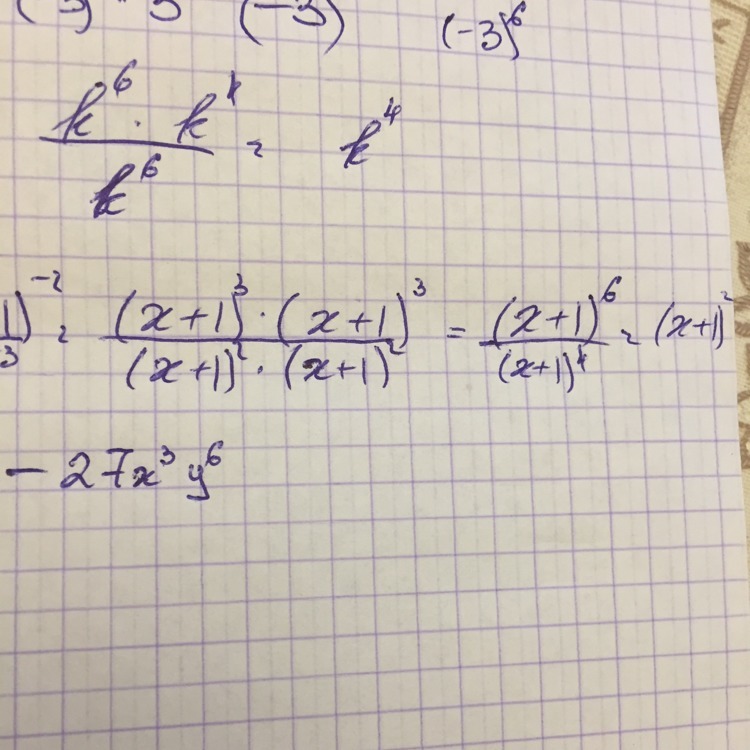 (-3)⁶
k⁶ · k⁴ / k⁶ = k⁴
)⁻² = (x+1)³ · (x+1)³ / (x+1)² · (x+1)² = (x+1)⁶ / (x+1)⁴ = (x+1)²
- 27x³ y⁶